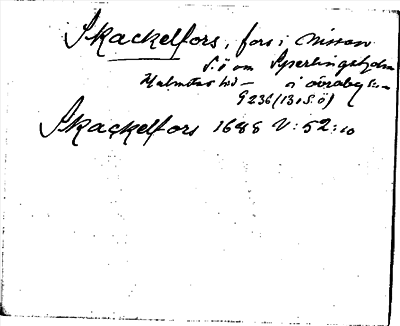 Skackelfors, fors i Nissan
S.ö om Sperlingsholm
Halmstad hd – i Övraby sn
9236 (13.S.Ö)
Skackelfors 1688 V:52:10